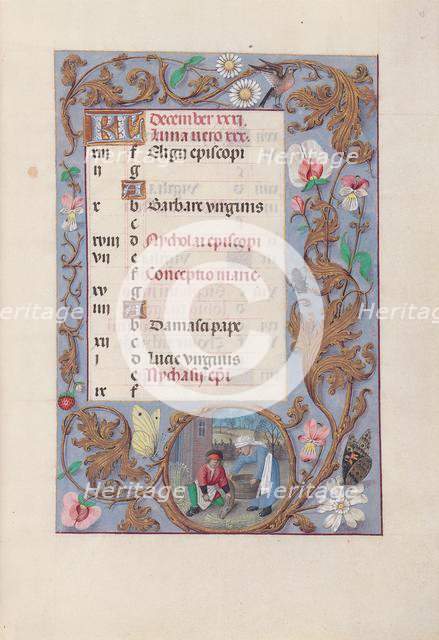 KL December xxxi
Luna vero xxx.
xiii f Eligii episcopi
ii g
A
x b Barbare virginis
c
xviii d Nycholai episcopi
vii e
f Conceptio marie
xv g
iiii A
b Damasci pape
xii c
i d Lucie virginis
e Nychasii epi
ix f
Heritage Heritage Heritage
Heritage Heritage Heritage
Heritage Heritage Heritage